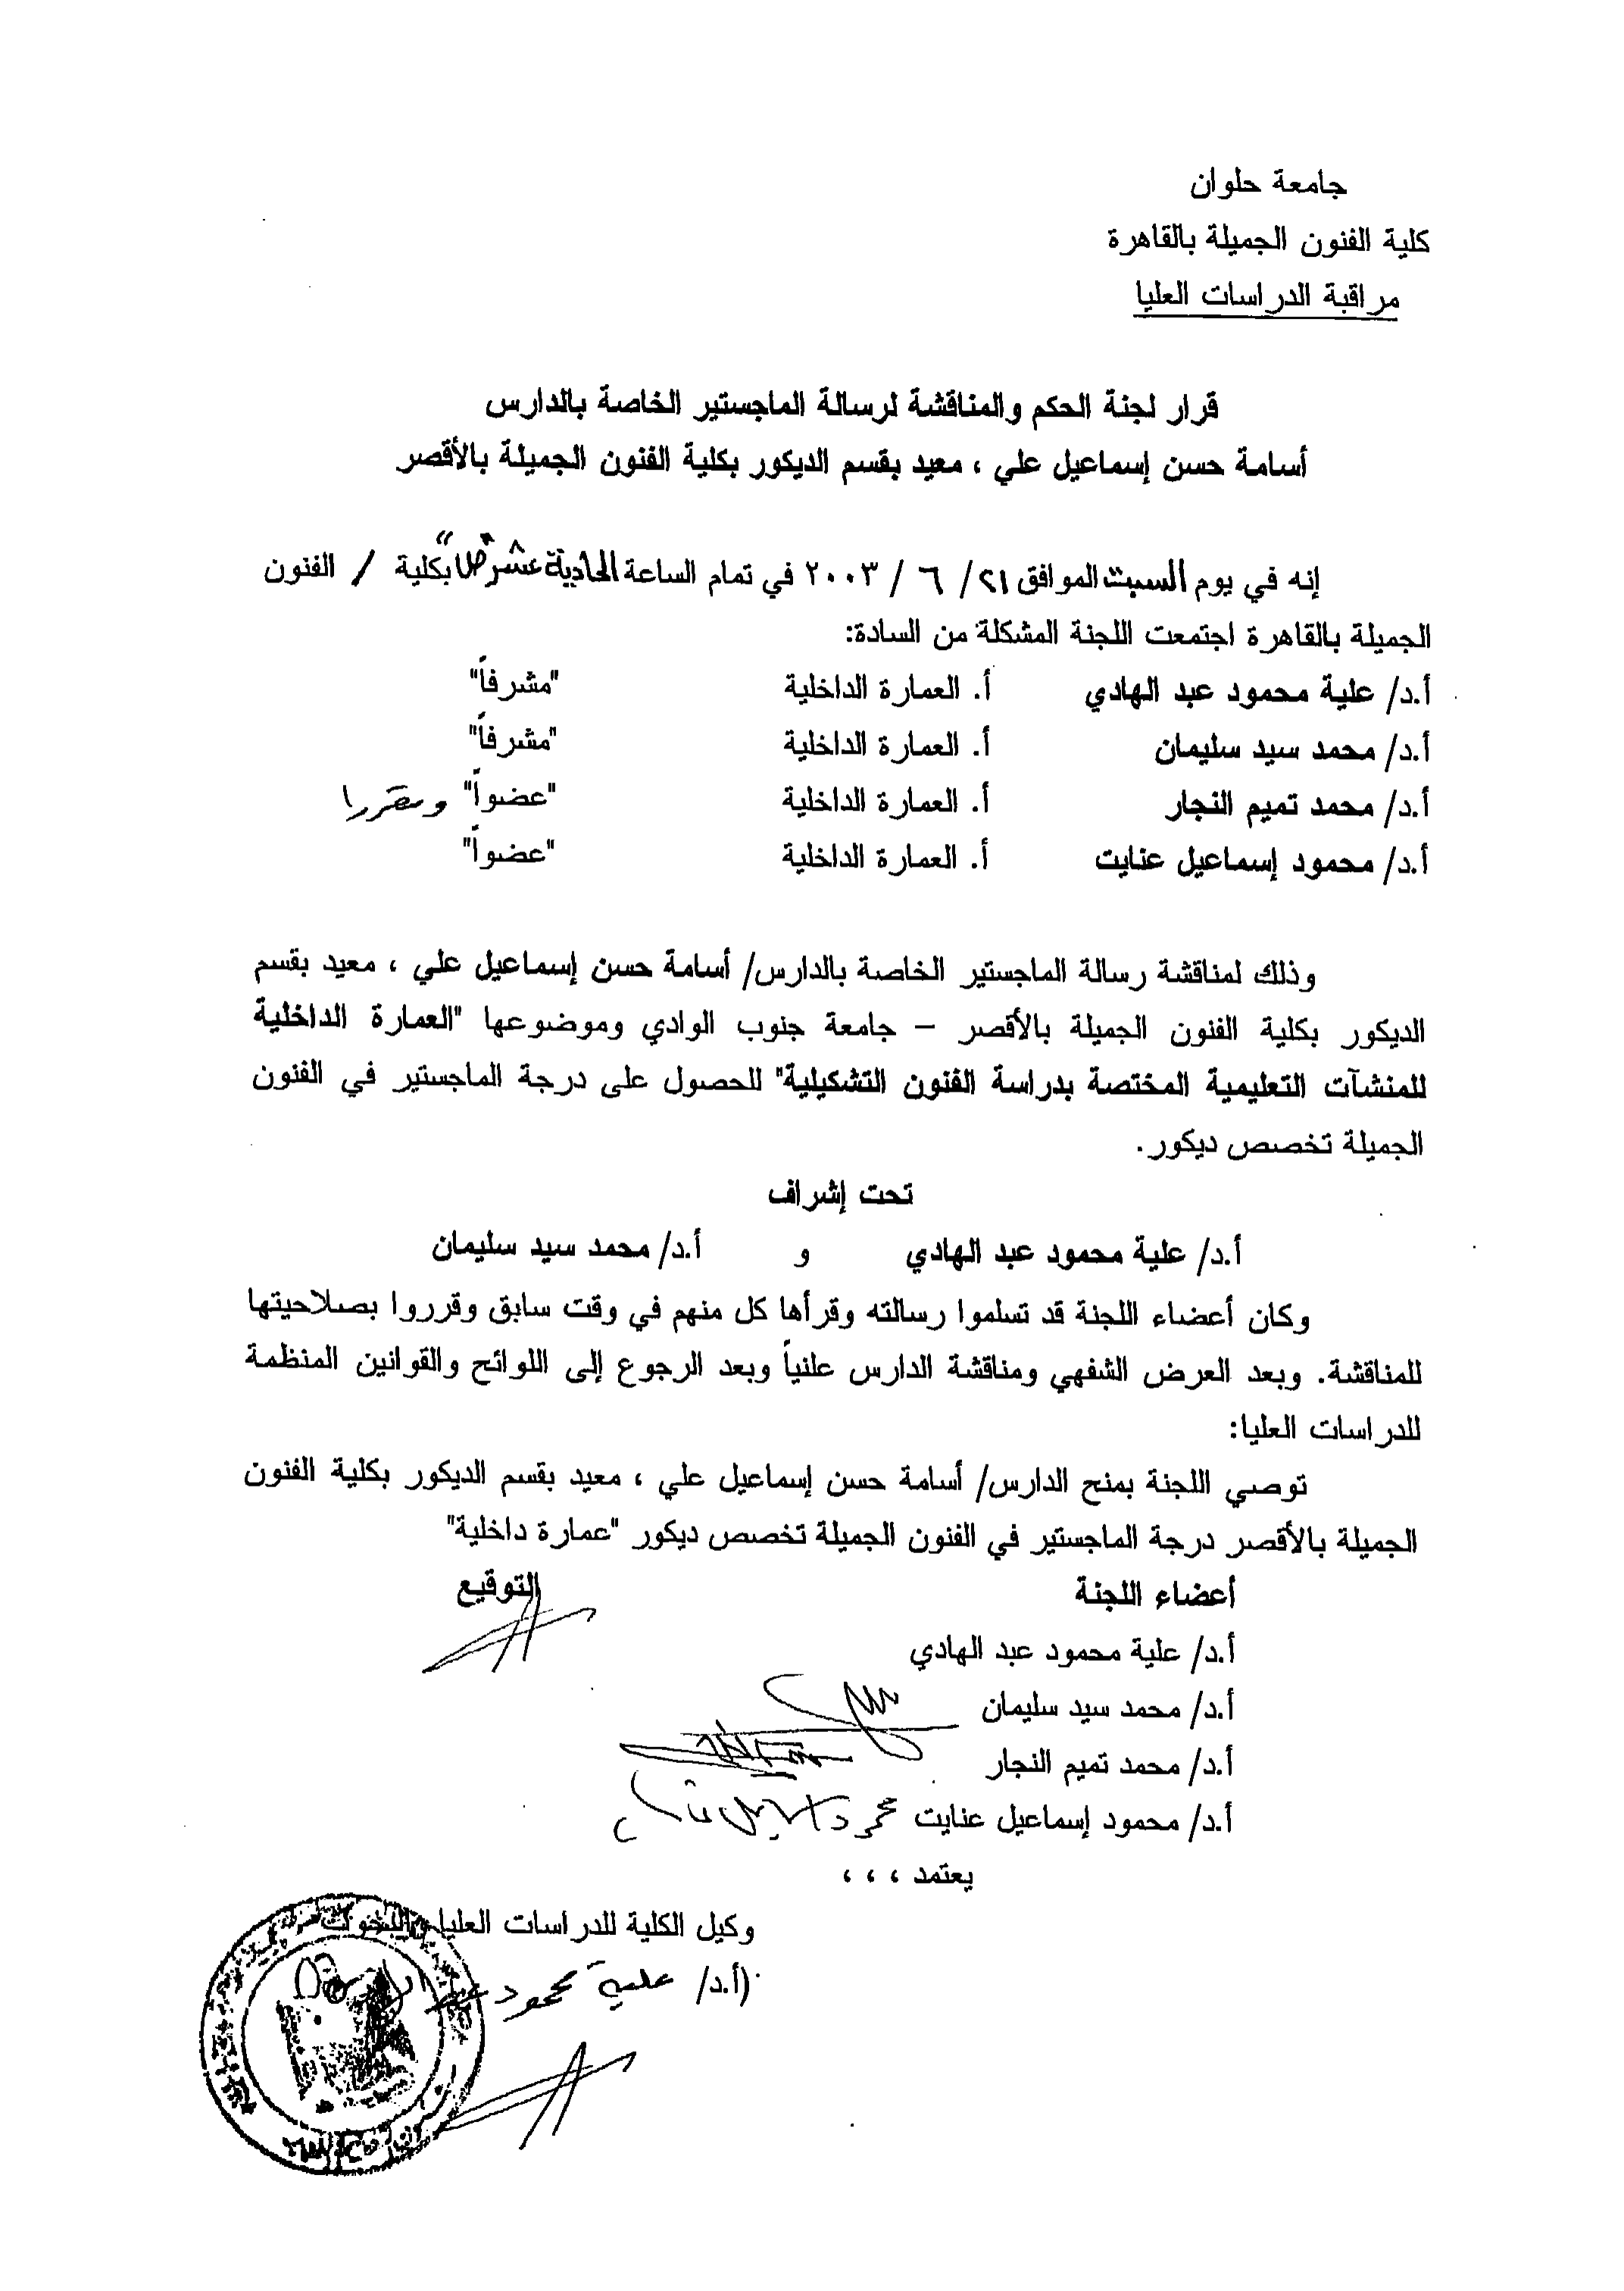 جامعة حلوان
كلية الفنون الجميلة بالقاهرة
مراقبة الدراسات العليا
قرار لجنة الحكم والمناقشة لرسالة الماجستير الخاصة بالدارس
أسامة حسن إسماعيل علي ، معيد بقسم الديكور بكلية الفنون الجميلة بالأقصر
إنه في يوم السبت الموافق ٢١ / ٦ / ٢٠٠٣ في تمام الساعة الحادية عشر "ص" بكلية / الفنون
الجميلة بالقاهرة اجتمعت اللجنة المشكلة من السادة:
أ.د/ علية محمود عبد الهادي أ. العمارة الداخلية "مشرفاً"
أ.د/ محمد سيد سليمان أ. العمارة الداخلية "مشرفاً"
أ.د/ محمد تميم النجار أ. العمارة الداخلية "عضواً" ومقررا
أ.د/ محمود إسماعيل عنايت أ. العمارة الداخلية "عضواً"
وذلك لمناقشة رسالة الماجستير الخاصة بالدارس/ أسامة حسن إسماعيل علي ، معيد بقسم
الديكور بكلية الفنون الجميلة بالأقصر – جامعة جنوب الوادي وموضوعها "العمارة الداخلية
للمنشآت التعليمية المختصة بدراسة الفنون التشكيلية" للحصول على درجة الماجستير في الفنون
الجميلة تخصص ديكور.
تحت إشراف
أ.د/ علية محمود عبد الهادي و أ.د/ محمد سيد سليمان
وكان أعضاء اللجنة قد تسلموا رسالته وقرأها كل منهم في وقت سابق وقرروا بصلاحيتها
للمناقشة. وبعد العرض الشفهي ومناقشة الدارس علنياً وبعد الرجوع إلى اللوائح والقوانين المنظمة
للدراسات العليا:
توصي اللجنة بمنح الدارس/ أسامة حسن إسماعيل علي ، معيد بقسم الديكور بكلية الفنون
الجميلة بالأقصر درجة الماجستير في الفنون الجميلة تخصص ديكور "عمارة داخلية"
أعضاء اللجنة التوقيع
أ.د/ علية محمود عبد الهادي
أ.د/ محمد سيد سليمان
أ.د/ محمد تميم النجار
أ.د/ محمود إسماعيل عنايت
يعتمد ، ، ،
وكيل الكلية للدراسات العليا والبحوث
(أ.د/ علية محمود عبد